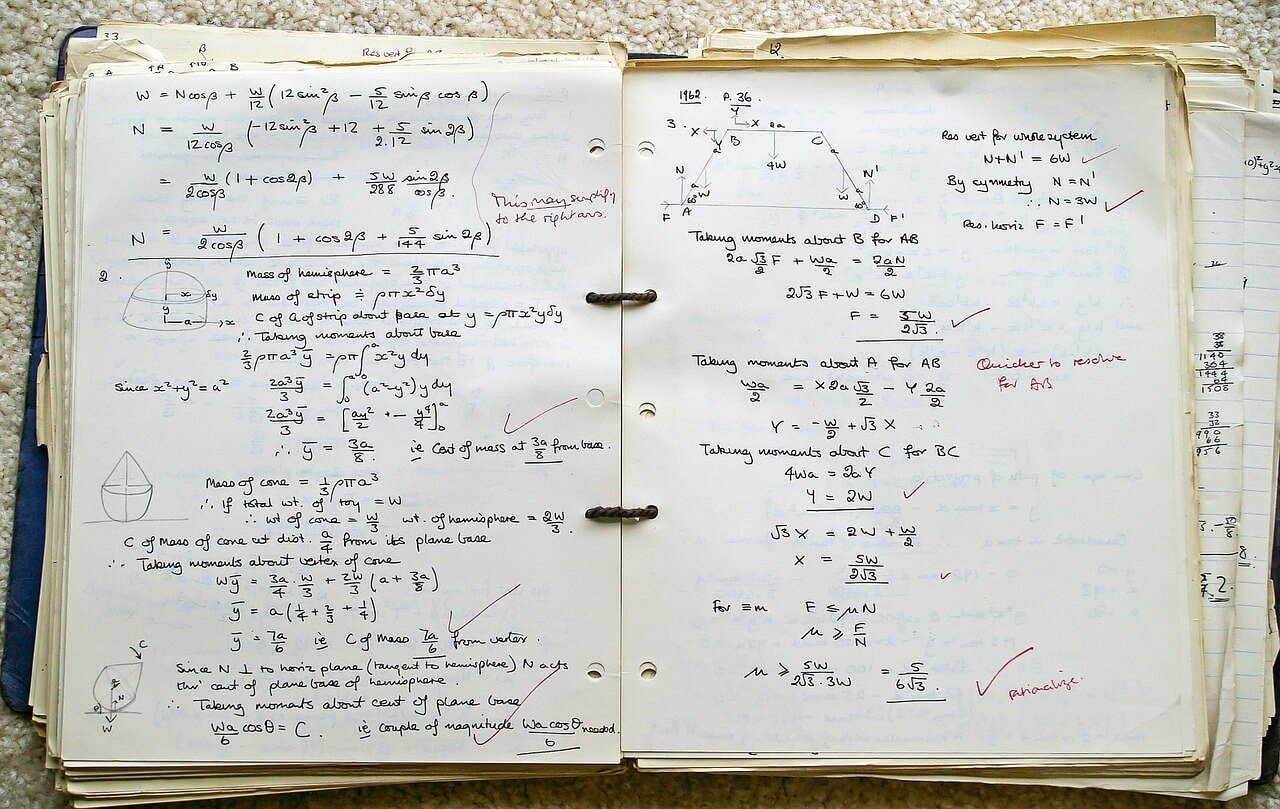 33.
β
Res vert
A
B
W = Ncosβ + W/12 (12sin²β − 5/12 sinβ cosβ)
N = W/12cosβ (-12sin²β + 12 + 5/2.12 sin2β)
= W/2cosβ (1 + cos2β) + 5W/288 sin2β/cosβ.
This may simplify
to the right ans.
N = W/2cosβ (1 + cos2β + 5/144 sin2β)
2.
y
x
δy
y
a
x
Mass of hemisphere = 2/3 πa³
Mass of strip ≑ ρπx²δy
C of G of strip about base at y = ρπx²yδy
∴ Taking moments about base
2/3 ρπa³ȳ = ρπ∫₀ᵃ x²y dy
Since x²+y² = a²
2a³ȳ/3 = ∫₀ᵃ (a²-y²) y dy
2a³ȳ/3 = [ay²/2 + - y⁴/4]₀ᵃ
∴ ȳ = 3a/8 ie Cent of mass at 3a/8 from base.
Mass of cone = 1/3 ρπa³
∴ If total wt. of toy = W
∴ wt of cone = W/3 wt. of hemisphere = 2W/3.
C of Mass of cone at dist. a/4 from its plane base
∴ Taking moments about vertex of cone
Wȳ = 3a/4 . W/3 + 2W/3 (a + 3a/8)
ȳ = a(1/4 + 2/3 + 1/4)
ȳ = 7a/6 ie C of Mass 7a/6 from vertex.
C
N
θ
W
Since N ⊥ to horiz plane (tangent to hemisphere) N acts
thro' cent of plane base of hemisphere.
∴ Taking moments about cent of plane base
Wa/6 cosθ = C. ie couple of magnitude Wa cosθ/6 needed.
12.
1962 P. 36.
3.
Y
X
X
Y
2a
B
C
a
a
4W
N
N'
a
a
W
W
60°
60°
F
A
D
F'
Res vert for whole system
N+N' = 6W
By symmetry N = N'
∴ N = 3W
Res. horiz F = F'
Taking moments about B for AB
2a √3/2 F + Wa/2 = 2aN/2
2√3 F + W = 6W
F = 5W/2√3.
Taking moments about A for AB
Quicker to resolve
for AB
Wa/2 = X2a √3/2 − Y 2a/2
Y = -W/2 + √3 X
Taking moments about C for BC
4Wa = 2aY
Y = 2W
√3 X = 2W + W/2
X = 5W/2√3
For ≡m F ≤ μN
μ ≥ F/N
μ ≥ 5W/2√3.3W = 5/6√3.
rationalize.
38
38
1140
304
1444
64
1508
33
32
990
66
956
8.
2.